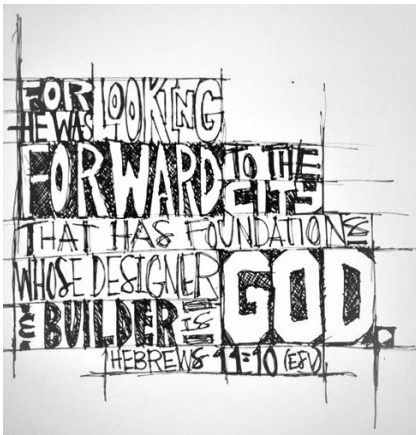 FOR HE WAS LOOKING
FORWARD TO THE CITY
THAT HAS FOUNDATIONS
WHOSE DESIGNER
& BUILDER IS GOD
HEBREWS 11:10 (ESV)